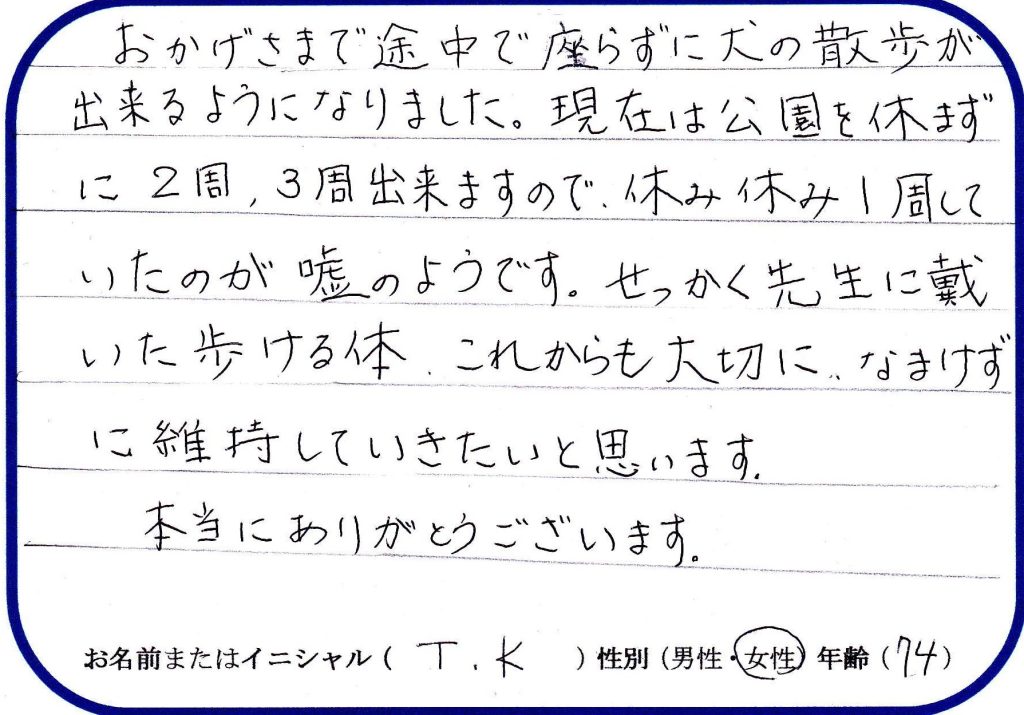 おかげさまで途中で座らずに犬の散歩が
出来るようになりました。現在は公園を休まず
に2周,3周出来ますので、休み休み1周して
いたのが嘘のようです。せっかく先生に戴
いた歩ける体、これからも大切に、なまけず
に維持していきたいと思います。
本当にありがとうございます。
お名前またはイニシャル( T.K )性別(男性・女性)年齢(74)